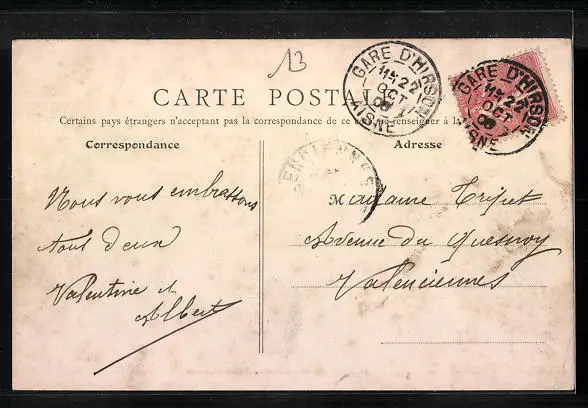 13
CARTE POSTALE
Certains pays étrangers n'acceptent pas la correspondance de ce renseigner à la
Correspondance
Adresse
GARE D'HIRSON
22
OCT
AISNE
GARE D'HIRSON
22
OCT
AISNE
Nous vous embrassons
tous deux
Valentine et
Albert
Madame
Avenue du Quesnoy
Valenciennes